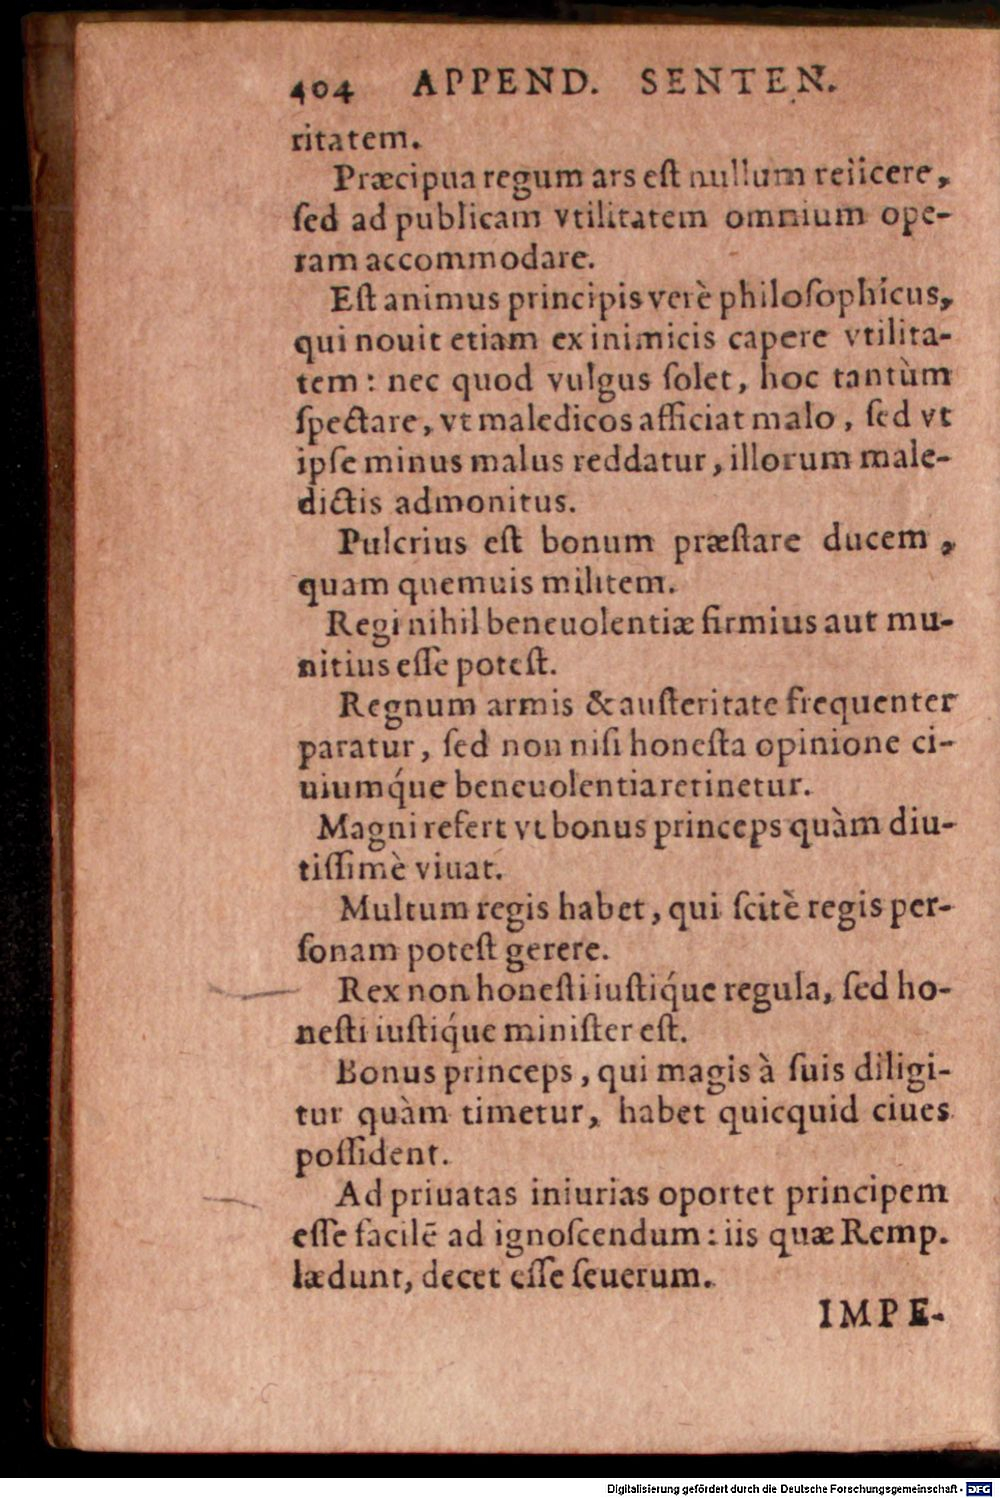 404 APPEND. SENTEN.
ritatem.
Præcipua regum ars eſt nullum reiicere,
ſed ad publicam vtilitatem omnium ope-
ram accommodare.
Eſt animus principis verè philoſophicus,
qui nouit etiam ex inimicis capere vtilita-
tem: nec quod vulgus ſolet, hoc tantùm
ſpectare, vt maledicos afficiat malo, ſed vt
ipſe minus malus reddatur, illorum male-
dictis admonitus.
Pulcrius eſt bonum præſtare ducem,
quam quemuis militem.
Regi nihil beneuolentiæ firmius aut mu-
nitius eſſe poteſt.
Regnum armis & auſteritate frequenter
paratur, ſed non niſi honeſta opinione ci-
uiumq́ue beneuolentia retinetur.
Magni refert vt bonus princeps quàm diu-
tiſſimè viuat.
Multum regis habet, qui ſcitè regis per-
ſonam poteſt gerere.
Rex non honeſti iuſtiq́ue regula, ſed ho-
neſti iuſtiq́ue miniſter eſt.
Bonus princeps, qui magis à ſuis diligi-
tur quàm timetur, habet quicquid ciues
poſſident.
Ad priuatas iniurias oportet principem
eſſe facilē ad ignoſcendum: iis quæ Remp.
lædunt, decet eſſe ſeuerum.
IMPE-
Digitalisierung gefördert durch die Deutsche Forschungsgemeinschaft - DFG